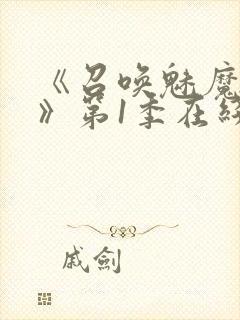 《召唤魅魔
》第1季在
戚劍